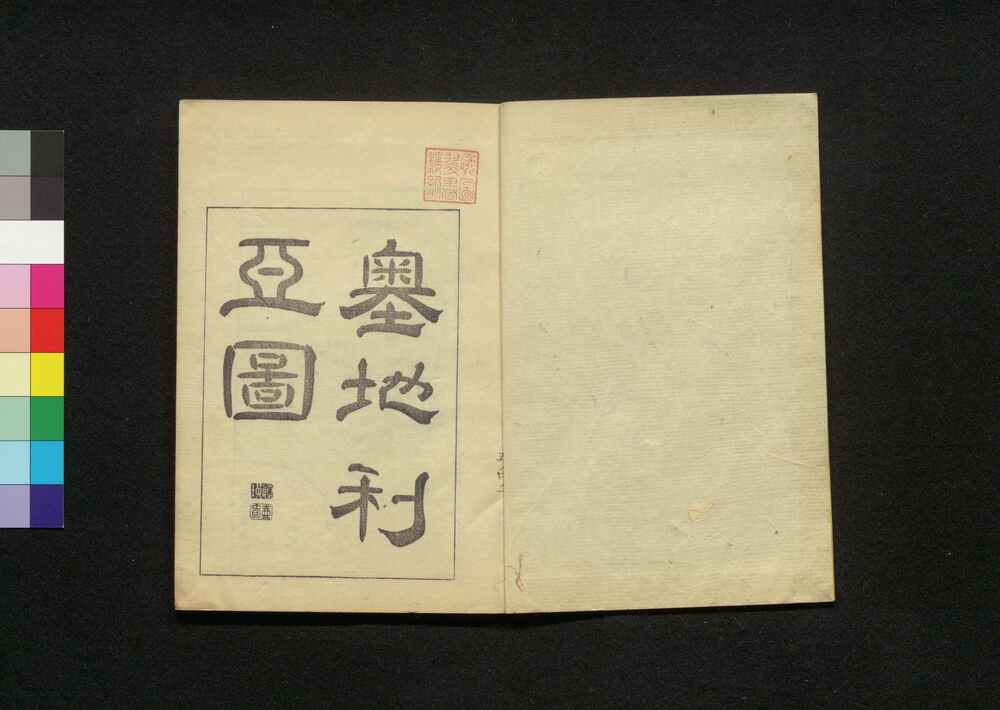 墺地利
亞圖